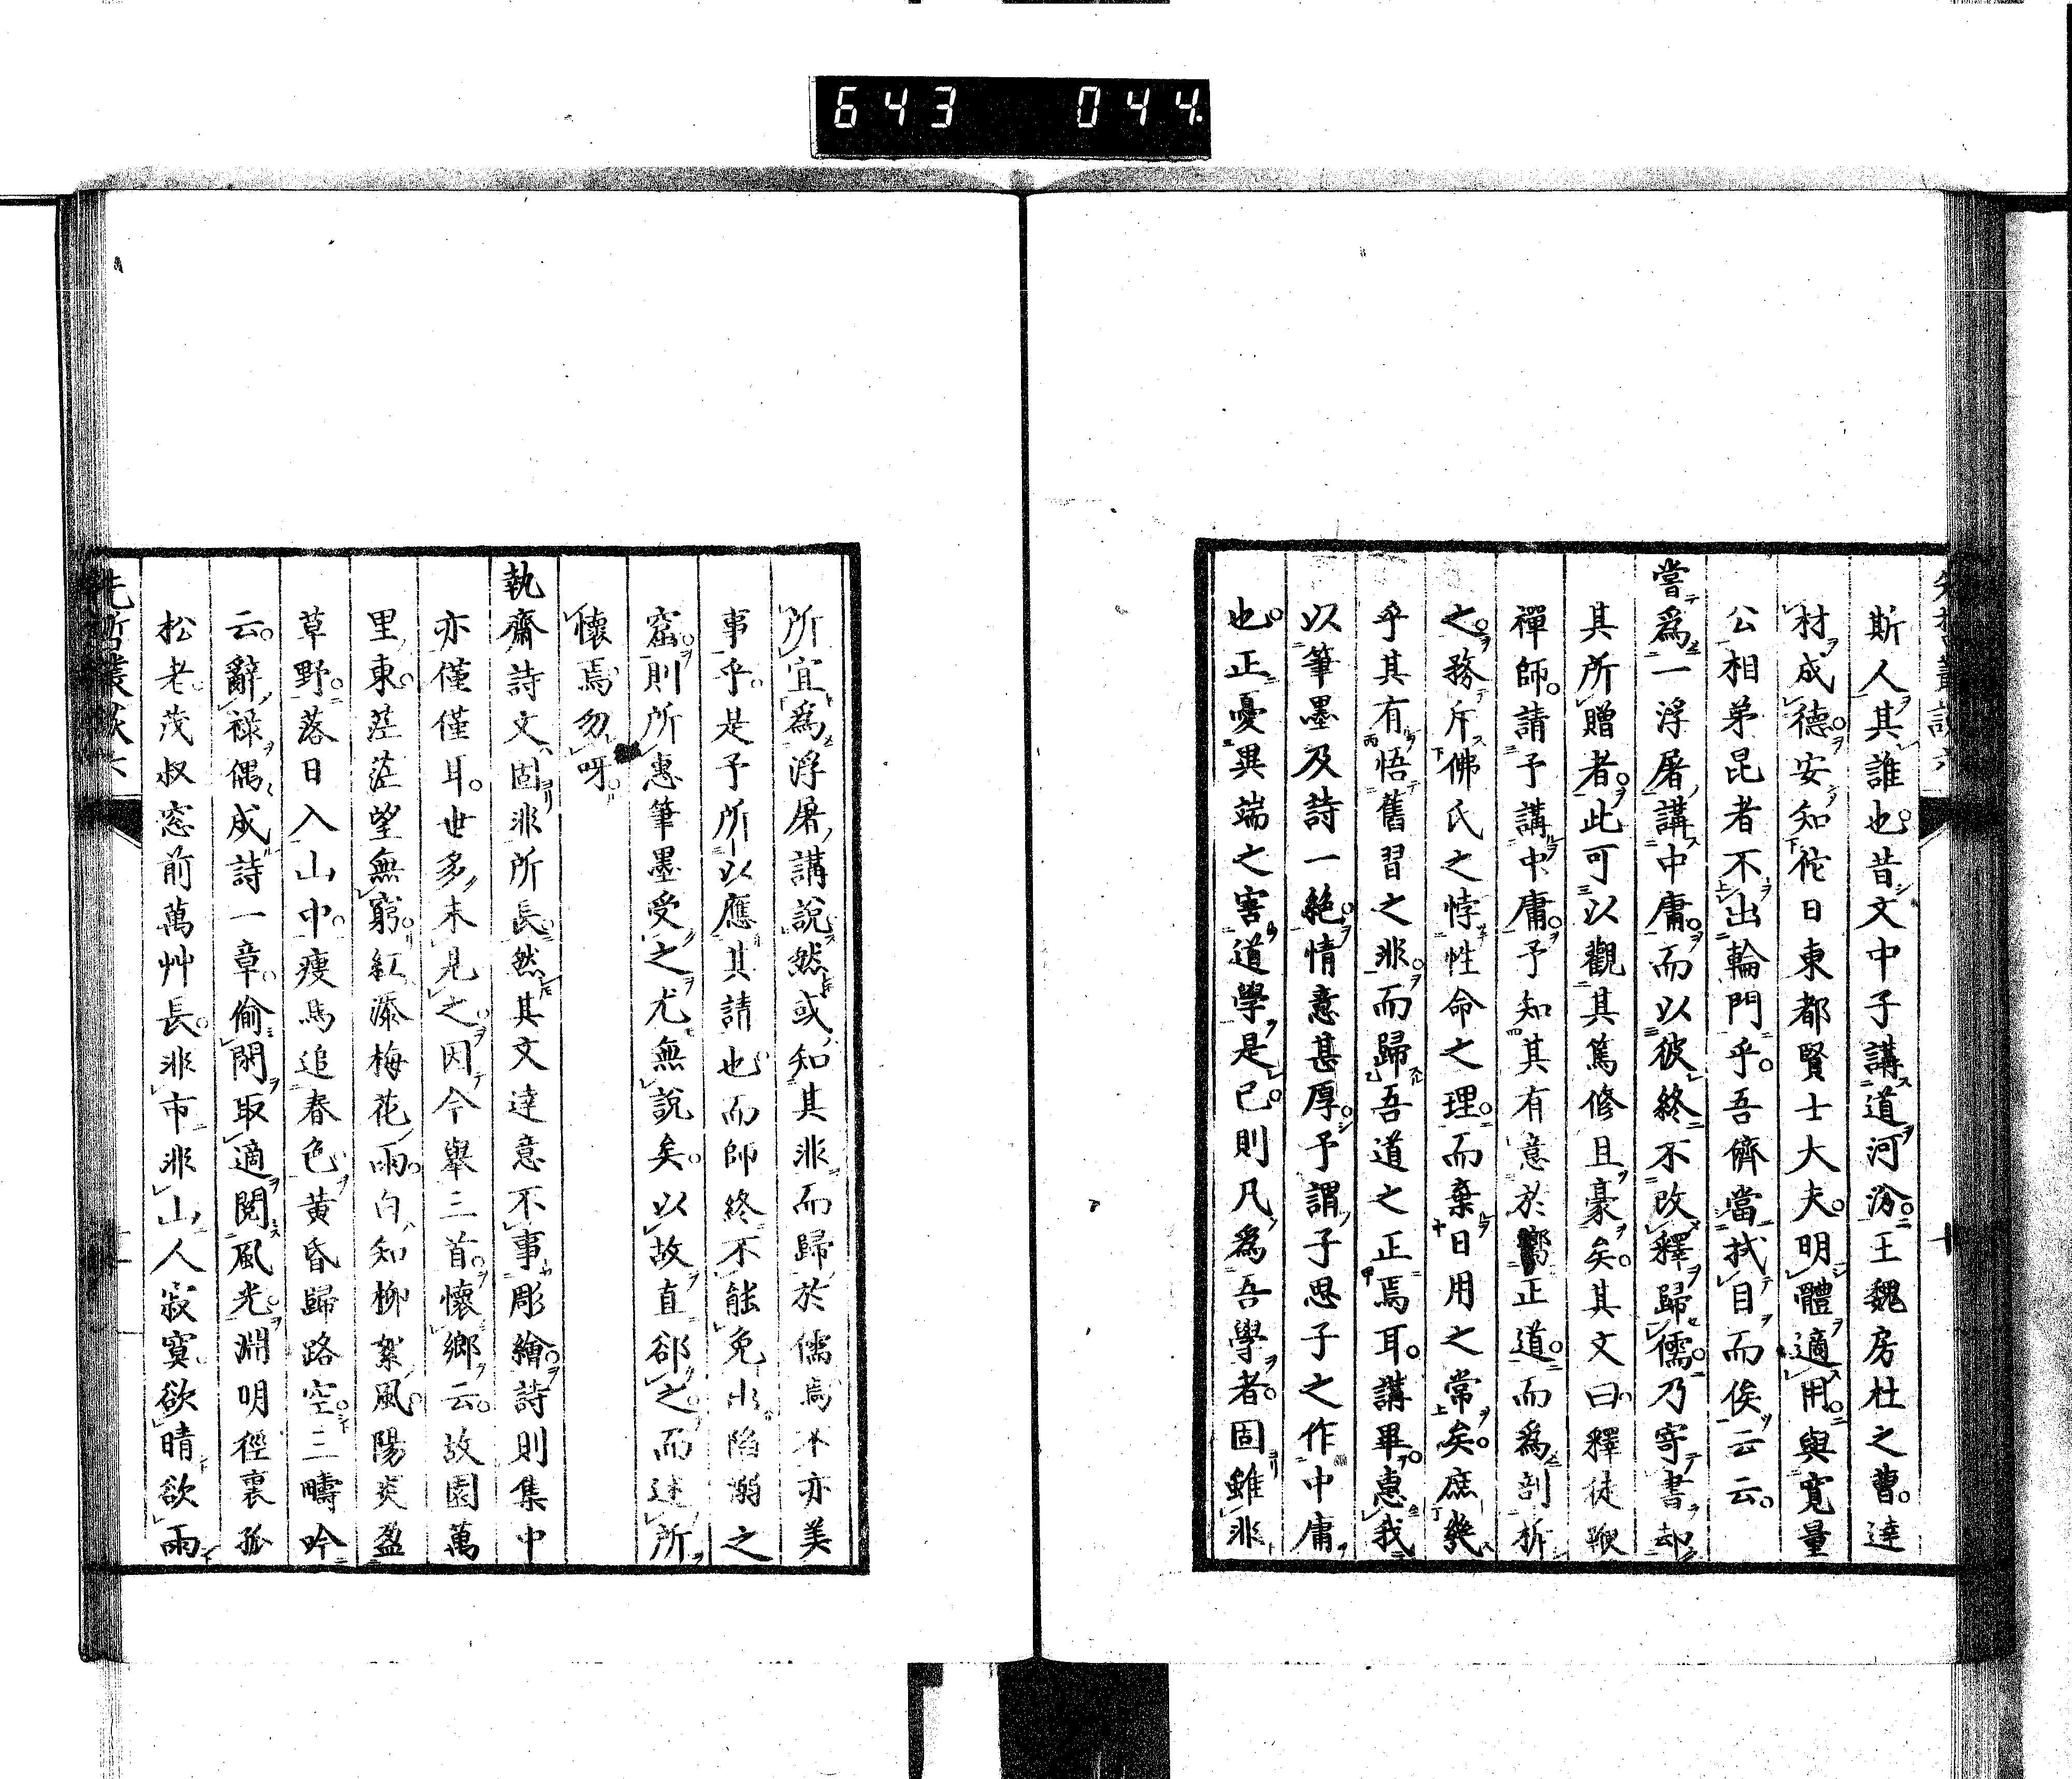 643 044
斯人其誰也昔文中子講道河汾王魏房杜之曹達
材成德安知佗日東都賢士大夫明體適用與寬量
公相弟昆者不出輪門乎吾儕當拭目而俟云云
嘗爲一浮屠講中庸而以彼終不改釋歸儒乃寄書却
其所贈者此可以觀其篤修且豪矣其文曰釋徒
禪師請予講中庸予知其有意於嚮正道而爲剖柝
之務斥佛氏之悖性命之理而棄日用之常矣庶幾
乎其有悟舊習之非而歸吾道之正焉耳講畢惠我
以筆墨及詩一絶情意甚厚予謂子思子之作中庸
也正憂異端之害道學是已則凡爲吾學者固雖非
所宜爲浮屠講說然或知其非而歸於儒焉不亦美
事乎是予所以應其請也而師終不能免出陷溺之
窟則所惠筆墨受之尤無說矣以故直郤之而述所
懷焉勿呀
執齋詩文固非所長然其文達意不事彫繪詩則集中
亦僅僅耳世多未見之因今舉三首懷鄉云故園萬
里東茫茫望無窮紅添梅花雨白知柳絮風陽炎盈
草野落日入山中瘦馬追春色黄昏歸路空三疇吟
云辭祿偶成詩一章偷閑取適閱風光淵明徑裏孤
松老茂叔窓前萬艸長非市非山人寂寞欲晴欲雨
先哲叢談六